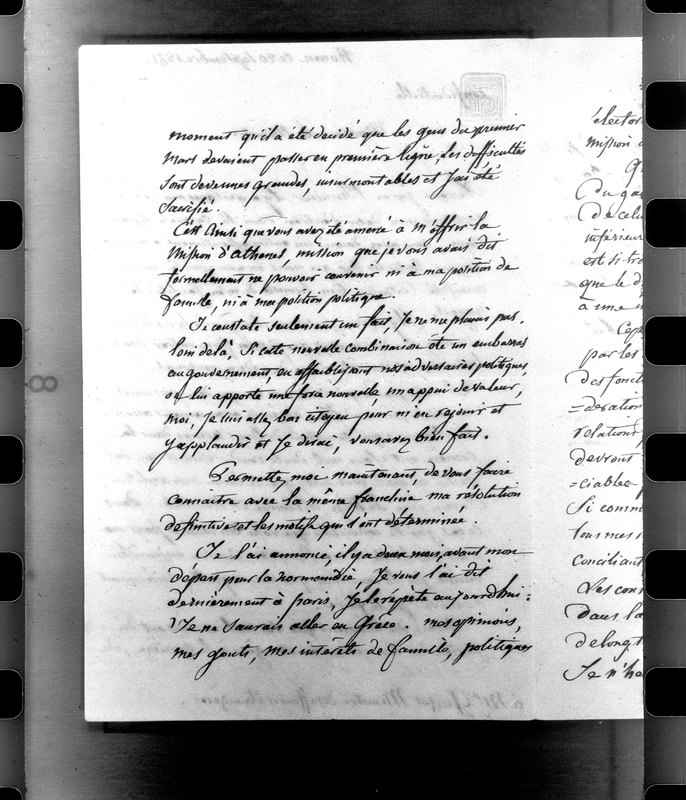 moment qu'il a été decidé que les gens du premier
Mars devaient passer en première ligne, les difficultés
sont devenues grandes, insurmontables et j'ai été
sacrifié.
C'est ainsi que vous avez été amené à m'offrir la
Mission d'athenes, mission que je vous avais dit
formellement ne pouvoir convenir ni à ma position de
famille, ni à ma position politique.
Je constate seulement un fait, Je ne me plains pas.
loin de là, Si cette nouvelle combinaison ôte un embarras
au gouvernement, en affaiblissant nos adversaires politiques,
ou lui apporte une force nouvelle un appui de valeur,
moi, Je suis assez bon citoyen pour m'en rejouir et
y applaudir et Je dirai, vous avez bien fait.
Permettez moi maintenant, de vous faire
connaitre avec la même franchise ma résolution
definitive et les motifs qui l'ont déterminée.
Je l'ai annoncé, il y a deux mois, avant mon
départ pour la normandie, Je vous l'ai dit
dernièrement à paris, Je le répète aujourd'hui:
Je ne saurais aller en Grèce. mes opinions,
mes gouts, mes intérêts de famille, politiques
élector
mission
Du
De celui
inférieur
est si
que le d
à une
Cep
par les
des fonct
=dération
relations
devront
=ciables
Si comm
tous mes
conciliant
Les con
Dans la
de long
Je n'he